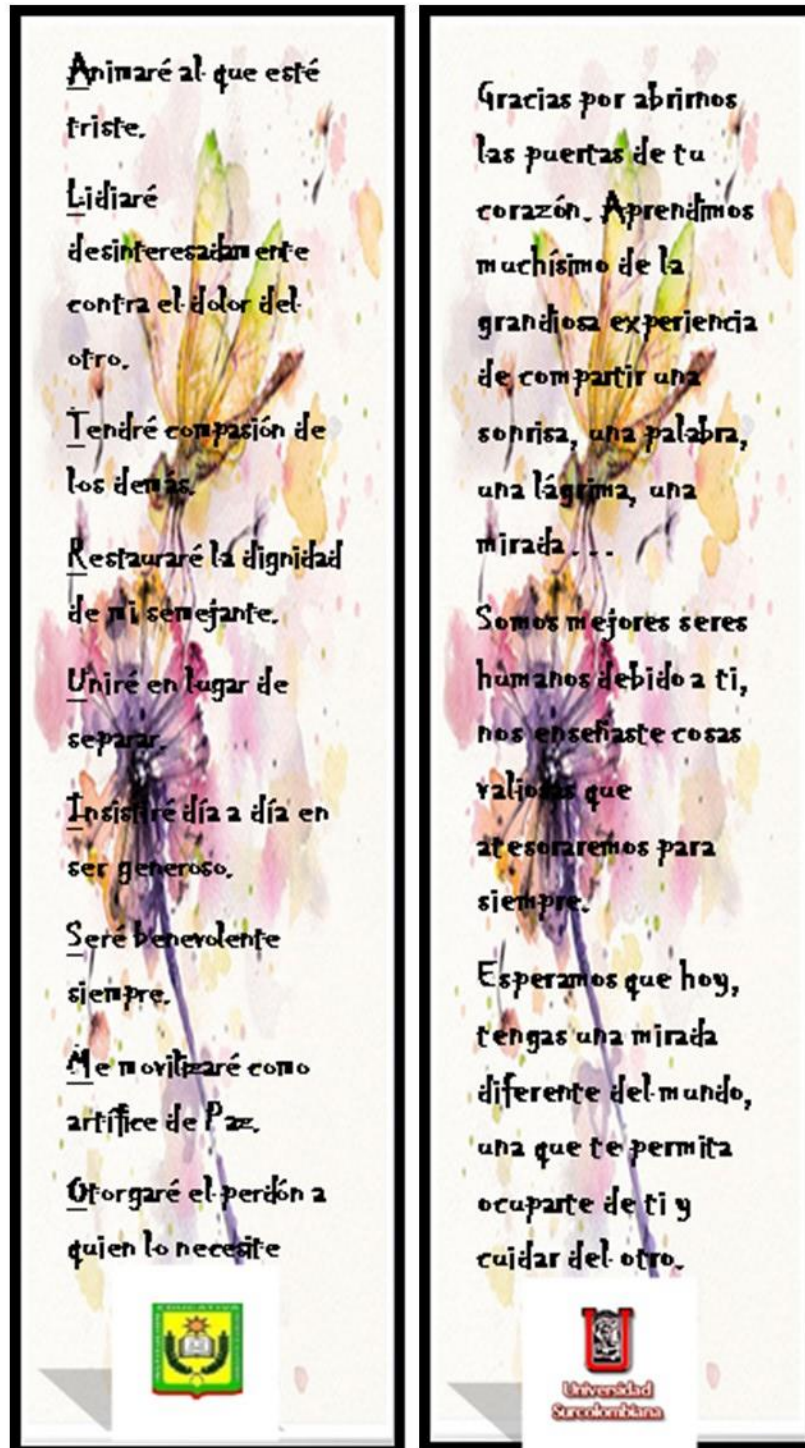 Animaré al que esté
triste.
Lidiaré
desinteresadamente
contra el dolor del
otro.
Tendré compasión de
los demás.
Restauraré la dignidad
de mi semejante.
Uniré en lugar de
separar.
Insistiré día a día en
ser generoso.
Seré benevolente
siempre.
Me movilizaré como
artífice de Paz.
Otorgaré el perdón a
quien lo necesite
EDUCATIVA
Gracias por abrirnos
las puertas de tu
corazón. Aprendimos
muchísimo de la
grandiosa experiencia
de compartir una
sonrisa, una palabra,
una lágrima, una
mirada...
Somos mejores seres
humanos debido a ti,
nos enseñaste cosas
valiosas que
atesoraremos para
siempre.
Esperamos que hoy,
tengas una mirada
diferente del mundo,
una que te permita
ocuparte de ti y
cuidar del otro.
Universidad
Surcolombiana